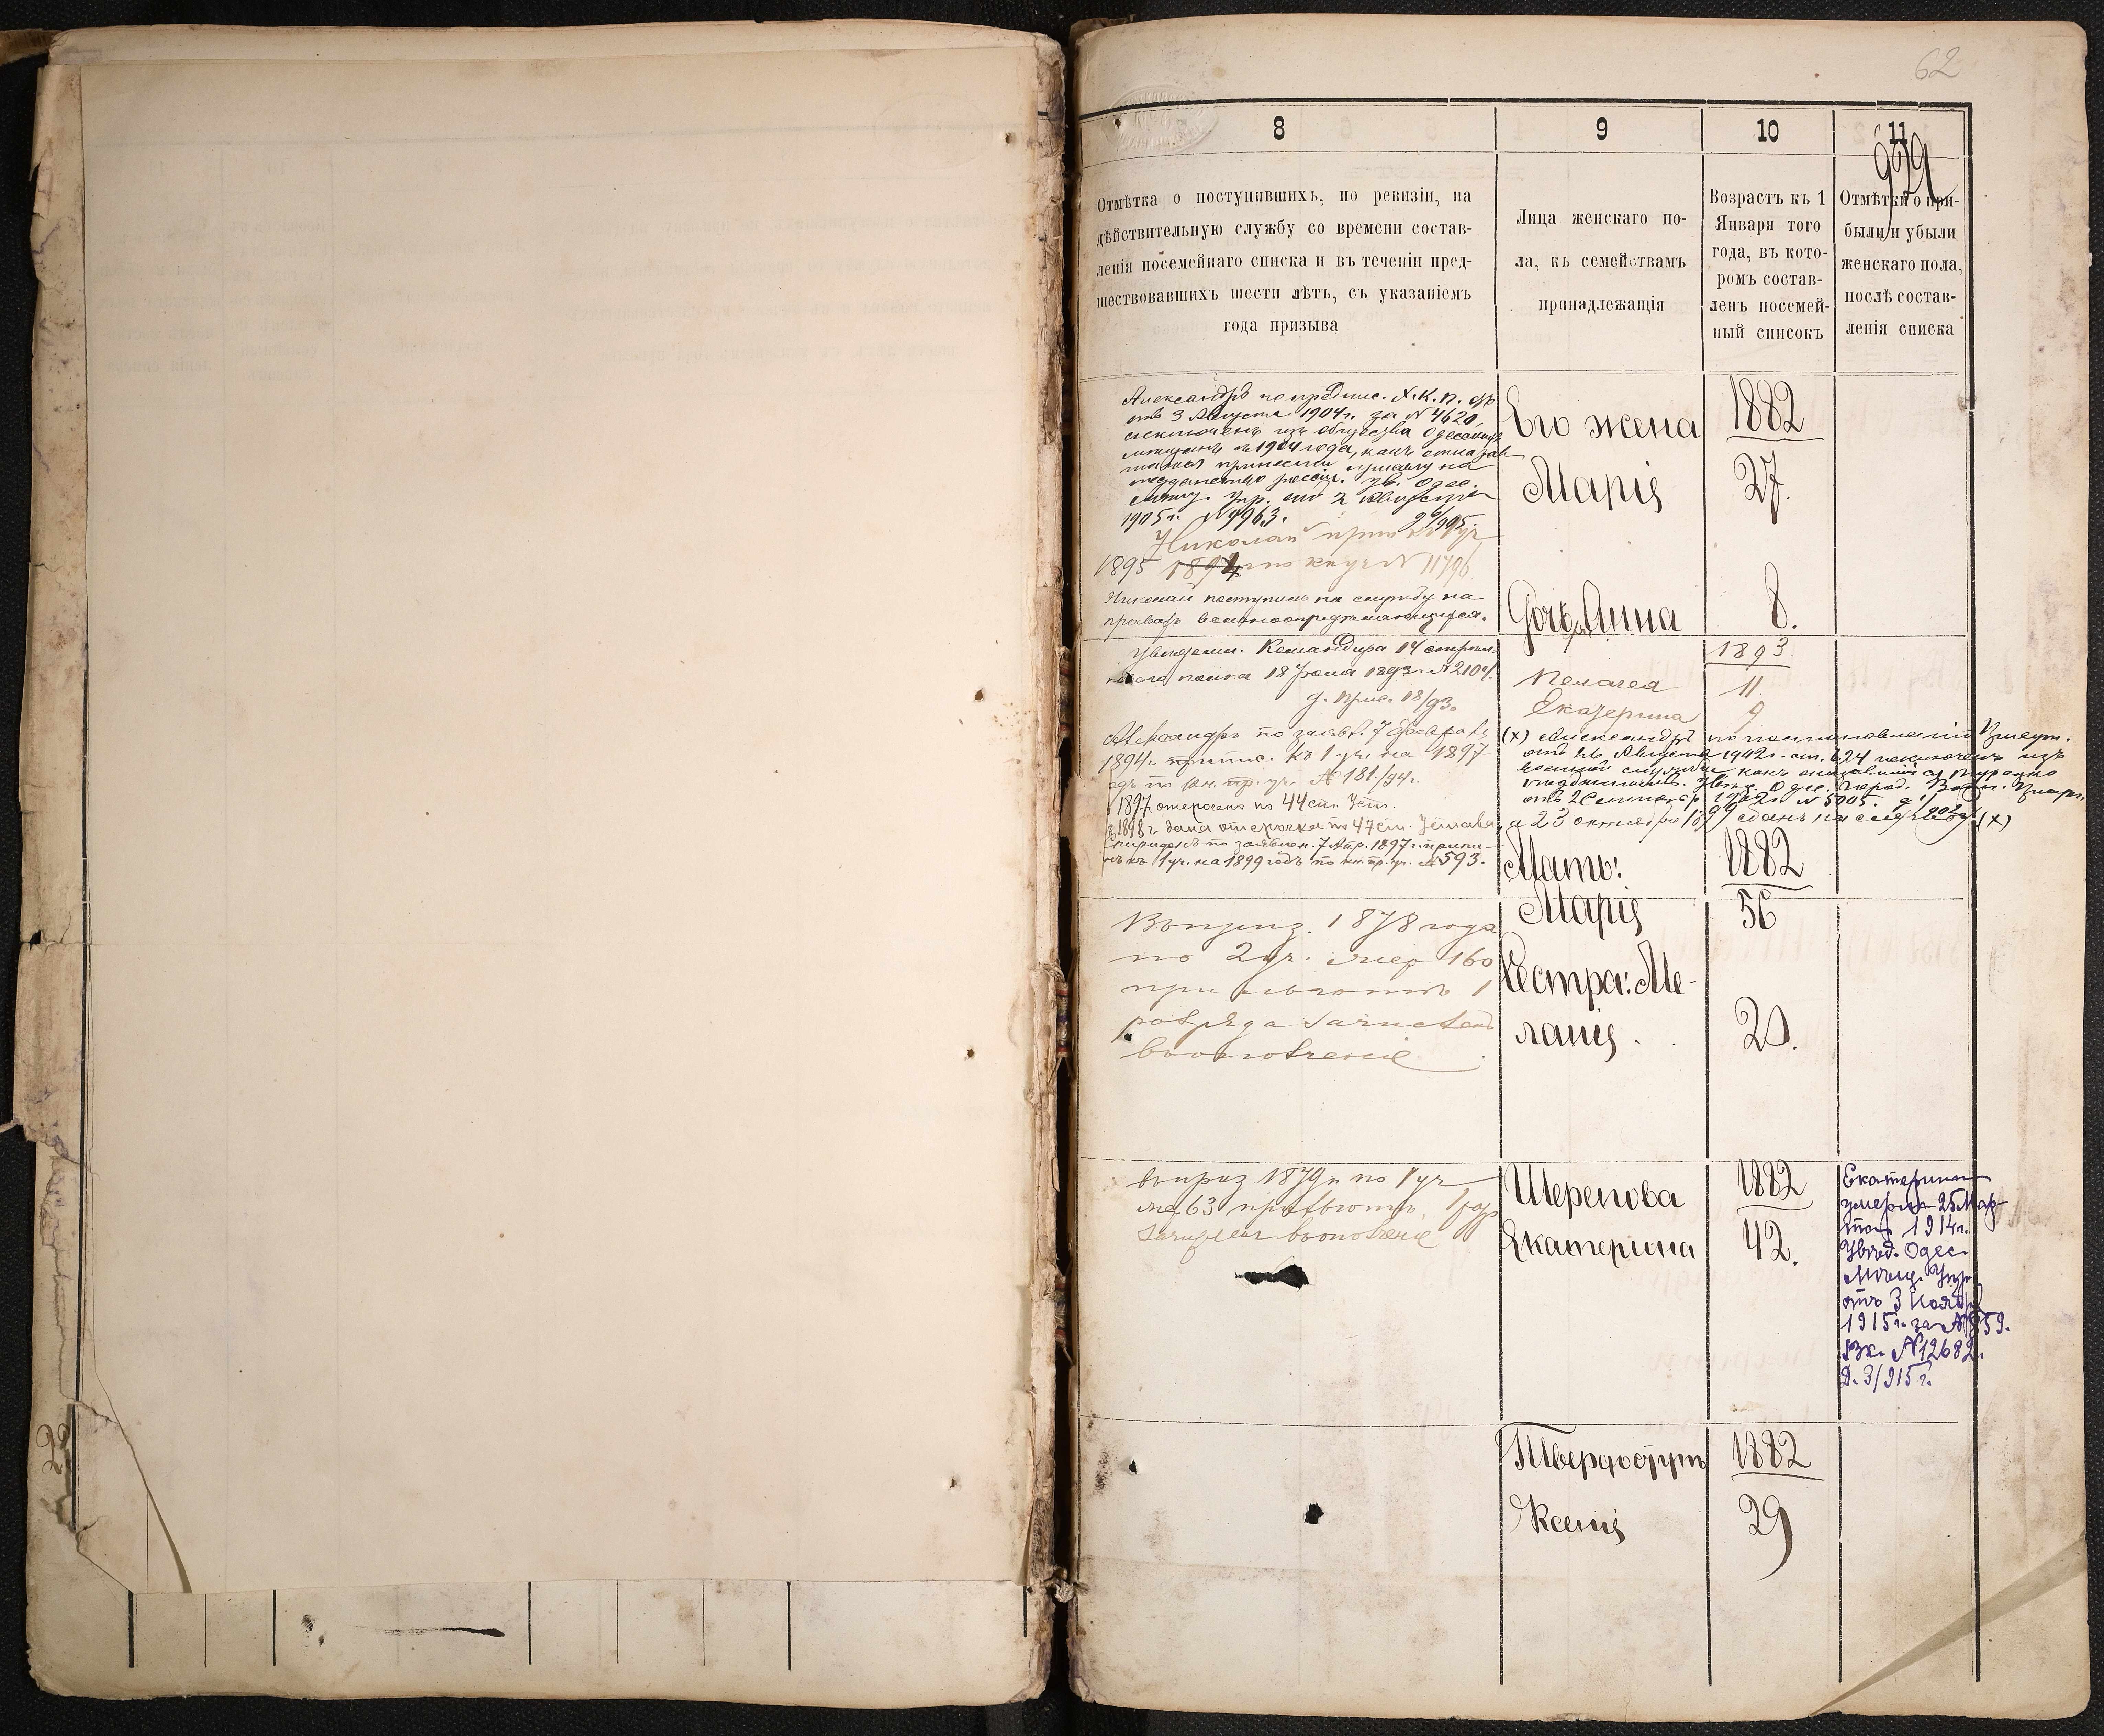 62
8
9
10
11
939
Отмѣтка о поступившихъ, по ревизіи, на
дѣйствительную службу со времени состав-
ленія посемейнаго списка и въ теченіи пред-
шествовавшихъ шести лѣтъ, съ указаніемъ
года призыва
Лица женскаго по-
ла, къ семействамъ
принадлежащія
Возрастъ къ 1
Января того
года, въ кото-
ромъ состав-
ленъ посемей-
ный списокъ
Отмѣтки о при-
были и убыли
женскаго пола,
послѣ состав-
ленія списка
Александръ по предпис. Х.К.П.
отъ 3 Августа 1904 г. за № 4620,
исключенъ изъ общества Одесскихъ
мѣщанъ съ 1904 года, какъ отказав
шійся принести присягу на
подданство россій. ув. Одес.
Упр. отъ 2 Августа
1905 г. № 4963.
Николай прип. къ 1 уч
1895 1894 по кн. уч № 117/96
Николай поступилъ на службу на
правахъ вольноопредѣляющагося.
Его жена
Марія
Дочь Анна
1882
27.
8.
Увѣдомл. Командира 14 стрѣл-
коваго полка 18 Іюля 1893 № 2104.
д. прис. 18/93.
Александръ по заявл. 7 Феврал.
1894 г. припис. къ 1 уч. на 1897
одъ по кн. пр. уч. № 181/94.
в 1897 отсрочено по 44 ст. Уст.
в 1898 г. дана отсрочка по 47 ст. Устава,
Спиридонъ по заявлен. 7 Апр. 1897 г. припи-
къ 1 уч. на 1899 годъ по кн. пр. уч. № 593.
1893
Пелагея 11.
Екатерина 9
(х) Александръ по постановленію Присут.
отъ 26 Августа 1902 г. ст. 624 исключенъ изъ
военной службы какъ оказавшійся Турецко
подданнымъ. Увѣд. Одес. Город. Воин. Присут.
отъ 2 Сентября 1902 г. № 5005.
а 23 октября 1899 сданъ на службу (х)
Мать:
Марія
Сестра: Ме-
ланія.
1882
56
20.
Въ призыв. 1878 года
по 2 уч. жер 160
при льготѣ 1
разряда зачисленъ
въ ополченіе
въ приз 1879 г. по 1 уч
же. 63 при льготѣ 1 раз
зачисленъ въ ополченіе
Шерепова
Екатерина
1882
42.
Екатерина
умерла 25 Мар
та 1914 г.
Увѣд. Одес.
Мѣщ. Упр.
отъ 3 Ноябр
1915 г. за № 859.
вх. № 12682.
Д. 3/915 г.
Ксенія
1882
29